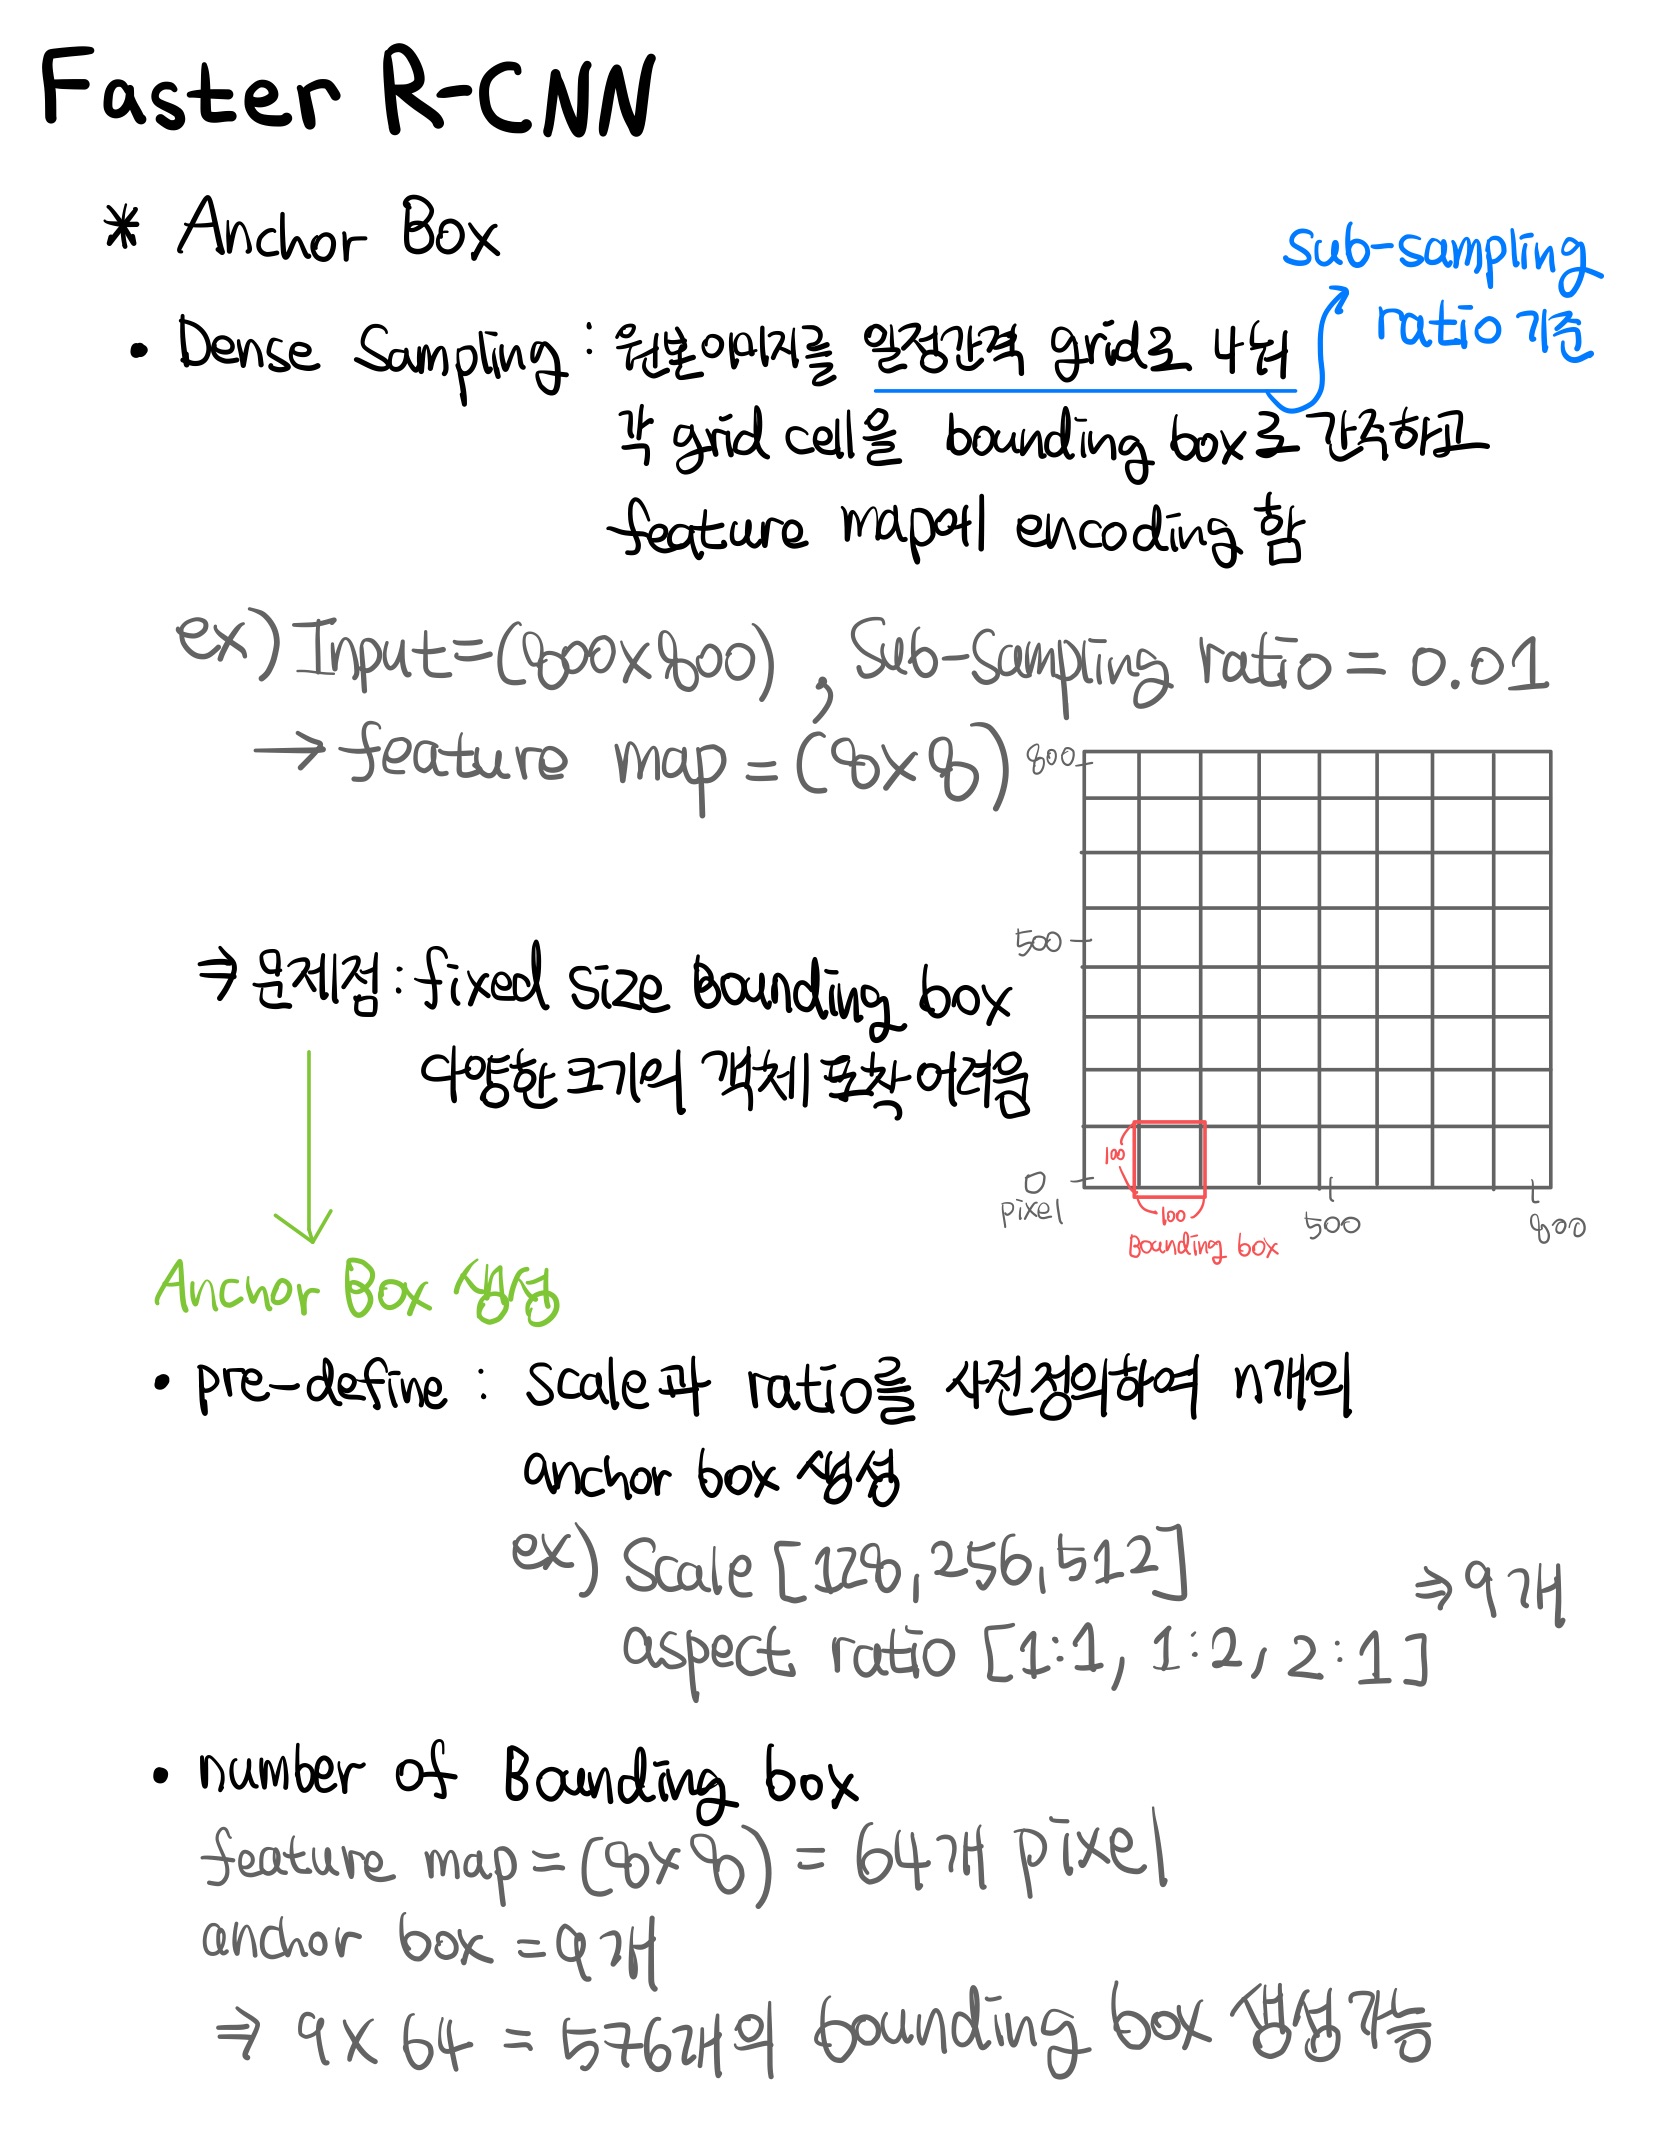 Faster R-CNN
* Anchor Box
sub-sampling
ratio 기준
• Dense Sampling : 원본이미지를 일정간격 grid로 나눠
각 grid cell을 bounding box로 간주하고
feature map에 encoding 함
ex) Input=(800x800), Sub-sampling ratio = 0.01
→ feature map = (8x8)
800
500
0
pixel
100
100
Bounding box
500
800
⇒ 문제점 : fixed size Bounding box
다양한 크기의 객체 포착 어려움
Anchor Box 생성
• pre-define : Scale과 ratio를 사전정의하여 n개의
anchor box 생성
ex) Scale [128, 256, 512]
⇒ 9개
aspect ratio [1:1, 1:2, 2:1]
• number of Bounding box
feature map = (8x8) = 64개 pixel
anchor box = 9개
⇒ 9 x 64 = 576개의 bounding box 생성가능